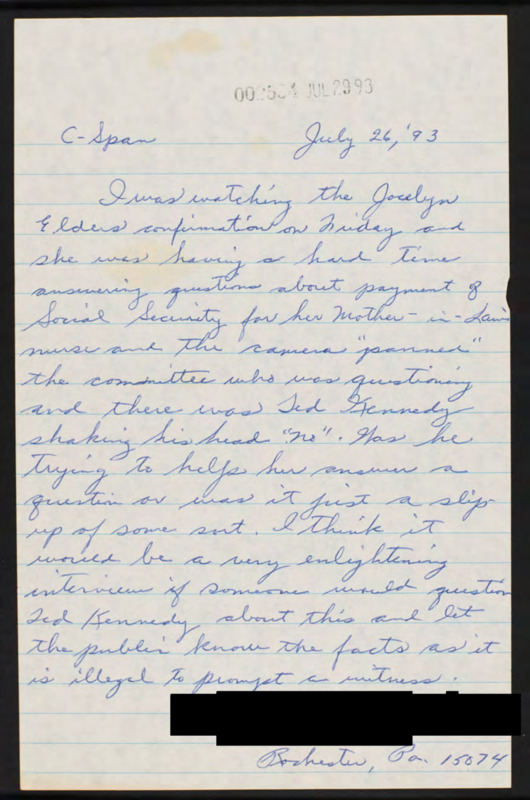 JUL 29 93
C-Span July 26, '93
I was watching the Jocelyn
Elders confirmation on Friday and
she was having a hard time
answering questions about payment of
Social Security for her Mother-in-Laws
nurse and the camera "panned"
the committee who was questioning
and there was Ted Kennedy
shaking his head "no". Was he
trying to help her answer a
question or was it just a slip-
up of some sort. I think it
would be a very enlightening
interview if someone would question
Ted Kennedy about this and let
the public know the facts as it
is illegal to prompt a witness.
Rochester, Pa. 15074